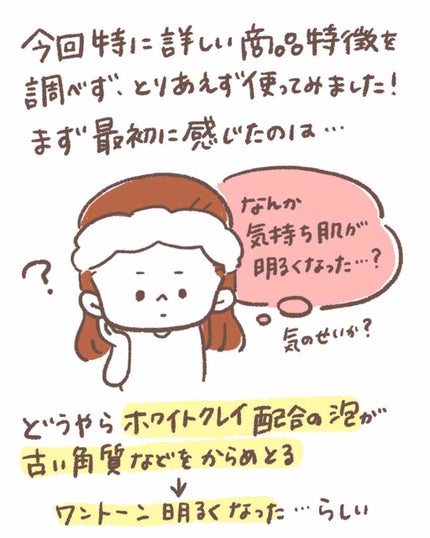 今回特に詳しい商品特徴を
調べず、とりあえず使ってみました!
まず最初に感じたのは…
なんか
気持ち肌が
明るくなった…?
?
気のせいか?
どうやら ホワイトクレイ配合の泡が
古い角質などをからめとる
↓
ワントーン明るくなった…らしい